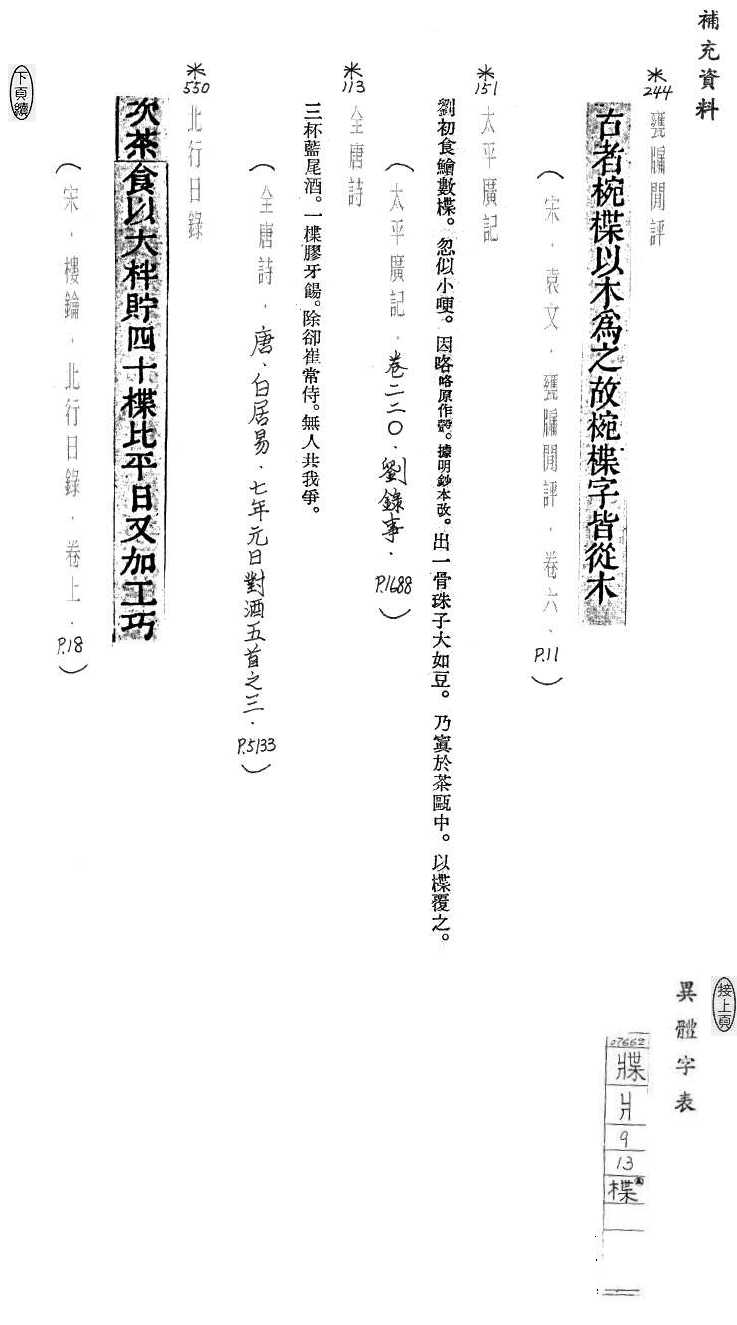 補充資料
*244
甕牖閒評
古者椀楪以木為之故椀楪字皆從木
（宋．袁文．甕牖閒評．卷六、P.11）
*151
太平廣記
劉初食鱠數楪。忽似小哽。因咯咯原作。據明鈔本改。出一骨珠子大如豆。乃寘於茶甌中。以楪覆之。
（太平廣記．卷二二〇．劉錄事．P.1688）
*113
全唐詩
三杯藍尾酒。一楪膠牙餳。除卻崔常侍。無人共我爭。
（全唐詩．唐．白居易．七年元日對酒五首之三．P.5133）
*550
北行日錄
次茶食以大柈貯四十楪比平日又加工巧
（宋．樓鑰．北行日錄．卷上．P.18）
下頁續
接上頁
異體字表
07662
爿
9
13
楪